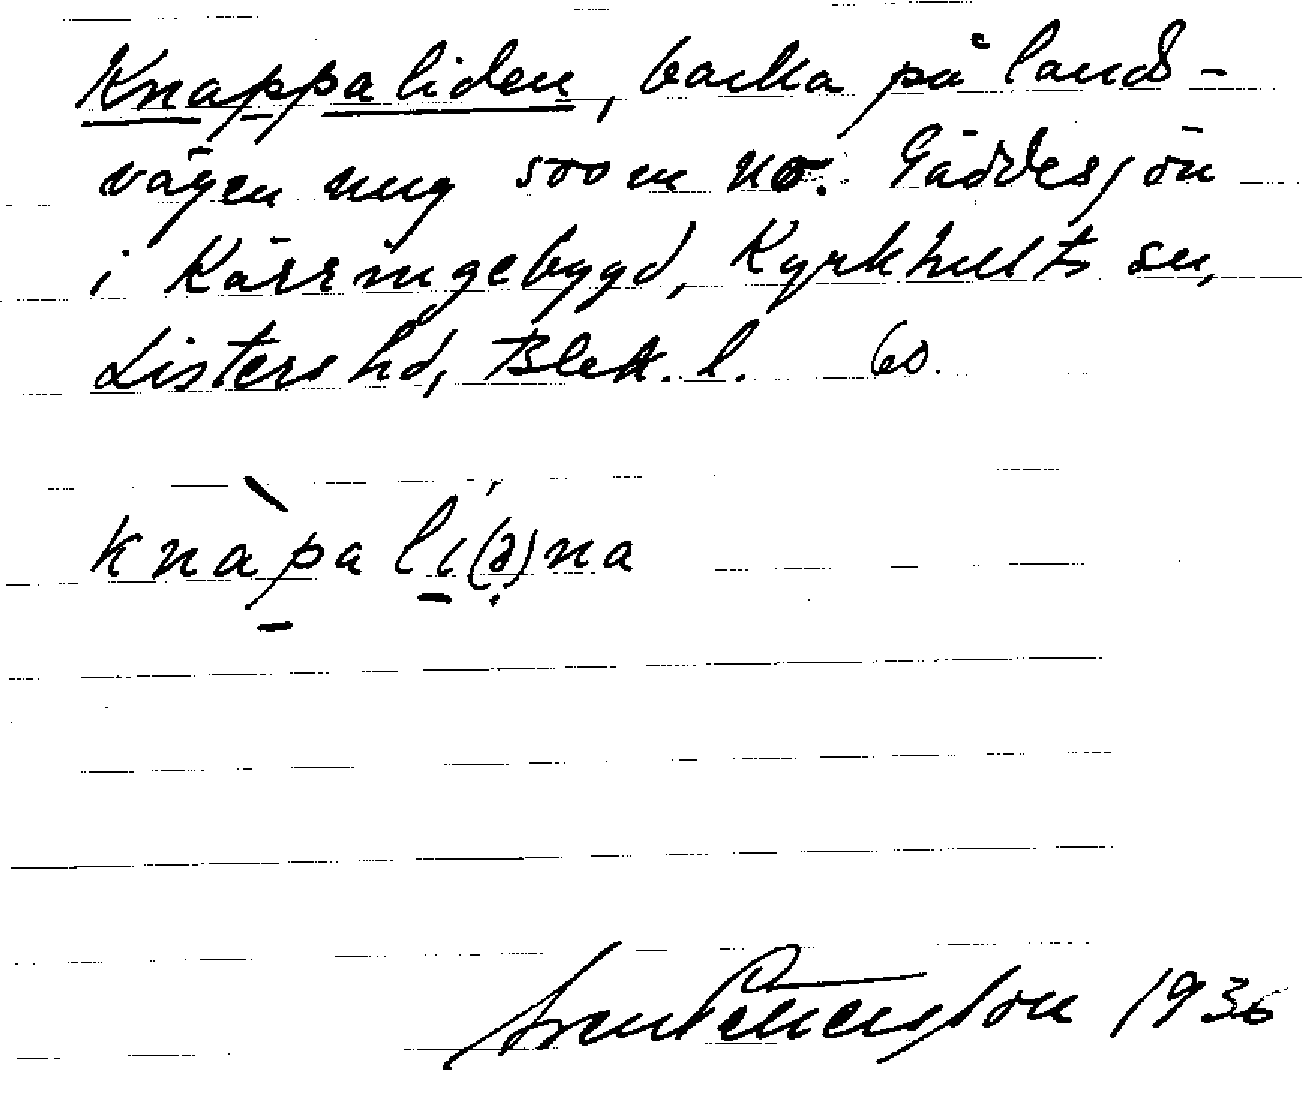 Knappaliden, backa på lands-
vägen nug 500 m no. Gäddesjön
i Kärringebygd, Kyrkhults sn,
Listers hd, Blek. l. 60.
knàpa lí(ə)na
1936